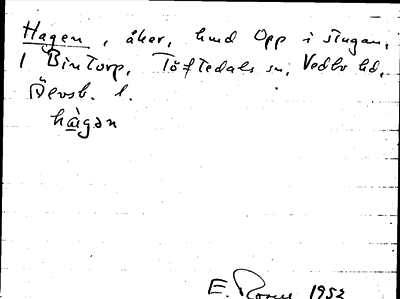 Hagen, åker, hmd Opp i stugan,
1 Bintorp, Töftedals sn, Vedbo hd,
Älvsb. l.
hàgən
E. Rosén 1952